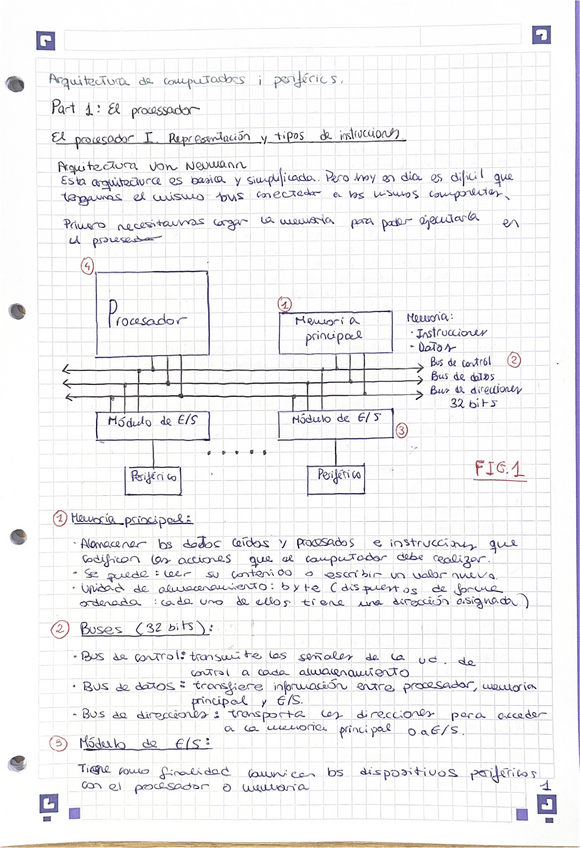 Arquitectura de computadors i perifèrics.
Part 1: El processador
El procesador I. Representación y tipos de instrucciones
Arquitectura Von Neumann
Esta arquitectura es basica y simplificada. Pero hoy en dia es dificil que
tengamos el mismo bus conectador a los mismos componentes.
Primero necesitamos cargar la memoria para poder ejecutarla en
el procesador
4
Procesador
1
Memoria
principal
Memoria:
· Instrucciones
· Datos
Bus de control 2
Bus de datos
Bus de direcciones
32 bits
Módulo de E/S
Módulo de E/S
3
Periférico
Periférico
FIG.1
1 Memoria principal:
· Almacenar los datos leídos y procesados e instrucciones que
codifican las acciones que el computador debe realizar.
· Se puede: leer su contenido o escribir un valor nuevo.
· Unidad de almacenamiento: byte (dispuestos de forma
ordenada: cada uno de ellos tiene una dirección asignada)
2 Buses (32 bits):
· Bus de control: transmite las señales de la ud. de
control a cada almacenamiento
· Bus de datos: transfiere información entre procesador, memoria
principal y E/S.
· Bus de direcciones: transporta las direcciones para acceder
a la memoria principal o a E/S.
3 Módulo de E/S:
Tiene como finalidad comunicar los dispositivos periféricos
con el procesador o memoria
1